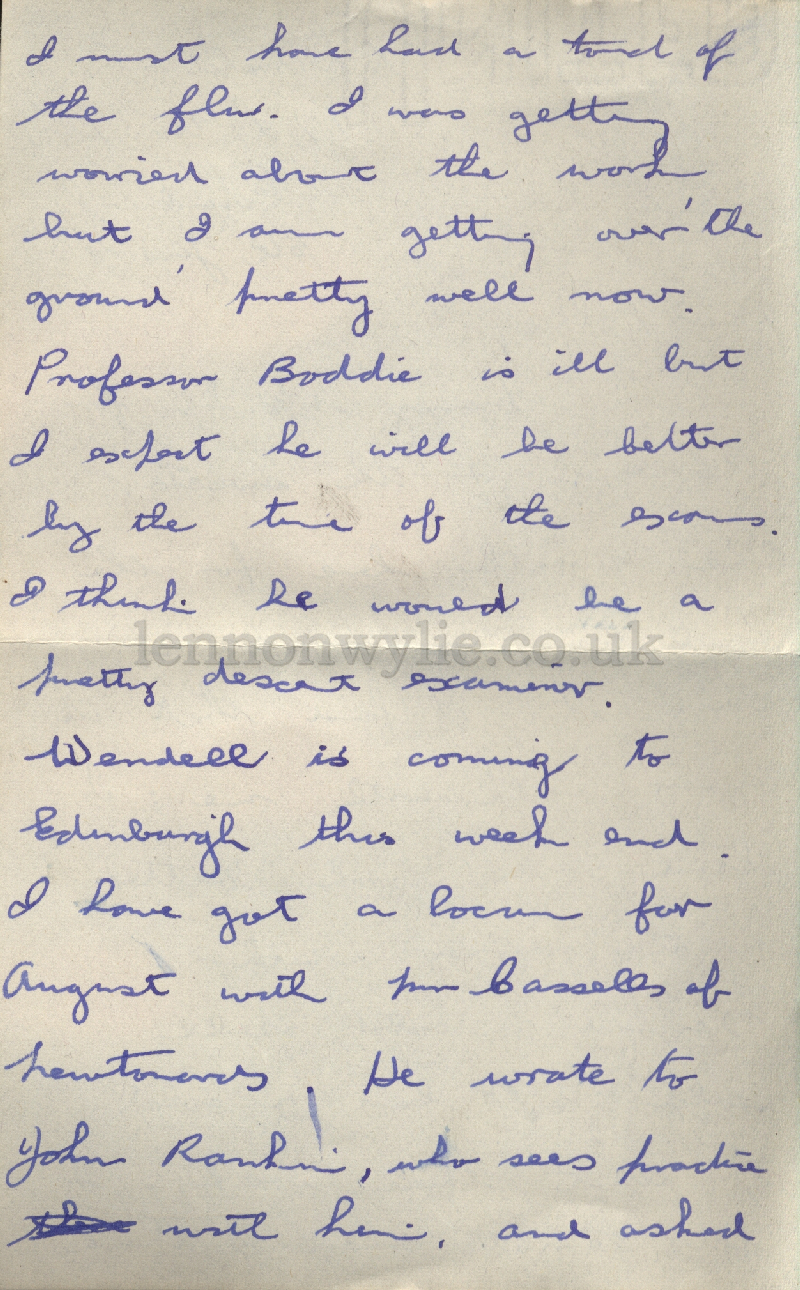 I must have had a touch of
the flu. I was getting
worried about the work
but I am getting over 'the
ground' pretty well now.
Professor Boddie is ill but
I expect he will be better
by the time of the exams.
I think he would be a
lennonwylie.co.uk
pretty descent examiner.
Wendell is coming to
Edinburgh this week end.
I have got a locum for
August with Cassells of
Newtonards. He wrote to
John Rankin, who sees practice
with him, and asked